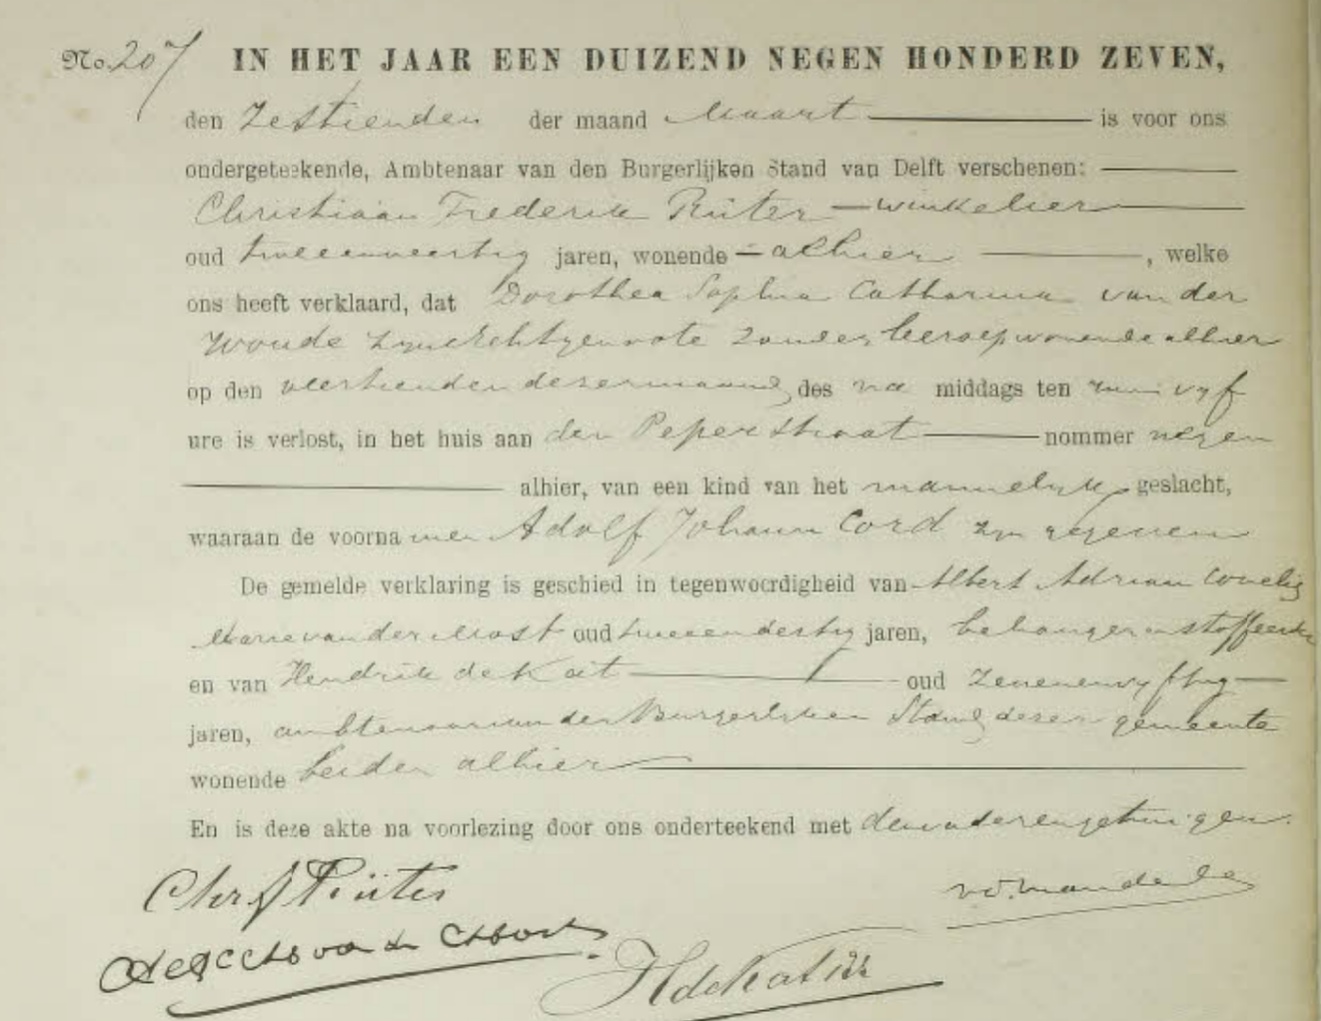 No. 207 IN HET JAAR EEN DUIZEND NEGEN HONDERD ZEVEN,
den Zestienden der maand Maart is voor ons
ondergeteekende, Ambtenaar van den Burgerlijken Stand van Delft verschenen:
Christiaan Frederik Rüter winkelier
oud tweeenveertig jaren, wonende alhier, welke
ons heeft verklaard, dat Dorothea Sophia Catharina van der
Woude zijne Echtgenoote zonder beroep wonende alhier
op den veertienden dezer maand des na middags ten ure vijf
ure is verlost, in het huis aan den Peperstraat nommer negen
alhier, van een kind van het mannelijk geslacht,
waaraan de voornamen Adolf Johann Cord zijn gegeven
De gemelde verklaring is geschied in tegenwoordigheid van Albert Adriaan Cornelis
Marie van der Most oud tweeendertig jaren, behanger en stoffeerder
en van Hendrik de Kat oud zevenenvijftig
jaren, ambtenaar van den Burgerlijken Stand dezer gemeente
wonende beiden alhier
En is deze akte na voorlezing door ons onderteekend met den vader en getuigen.
Chr. F. Rüter
van der Most
HdeKat